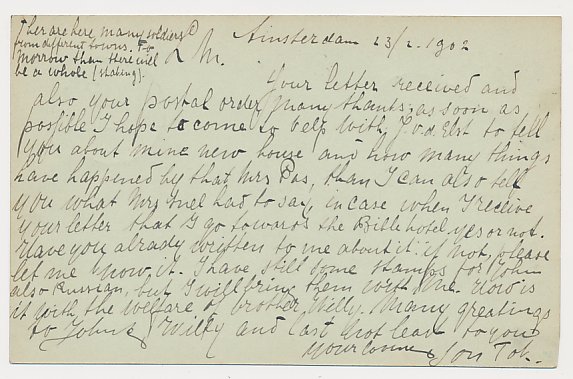 There are here many soldiers
from different towns. To
morrow than there will
be a whole (staking).
Amsterdam 23/2. 1902
L M.
Your letter received and
also your postal order, many thanks, as soon as
possible I hope to come to help with J. v. d. Elst to tell
you about mine new house and how many things
have happened by that Mrs Pas, than I can also tell
you what Mrs had to say in case when I receive
your letter that I go towards the Bible hotel yes or not.
Have you already written to me about it: if not, please
let me know it. I have still some stamps for John
also Russian, but I will bring them with me. How is
it with the welfare of brother Willy. Many greatings
to John & Willy and last not least to you
Your loving Son Tob.